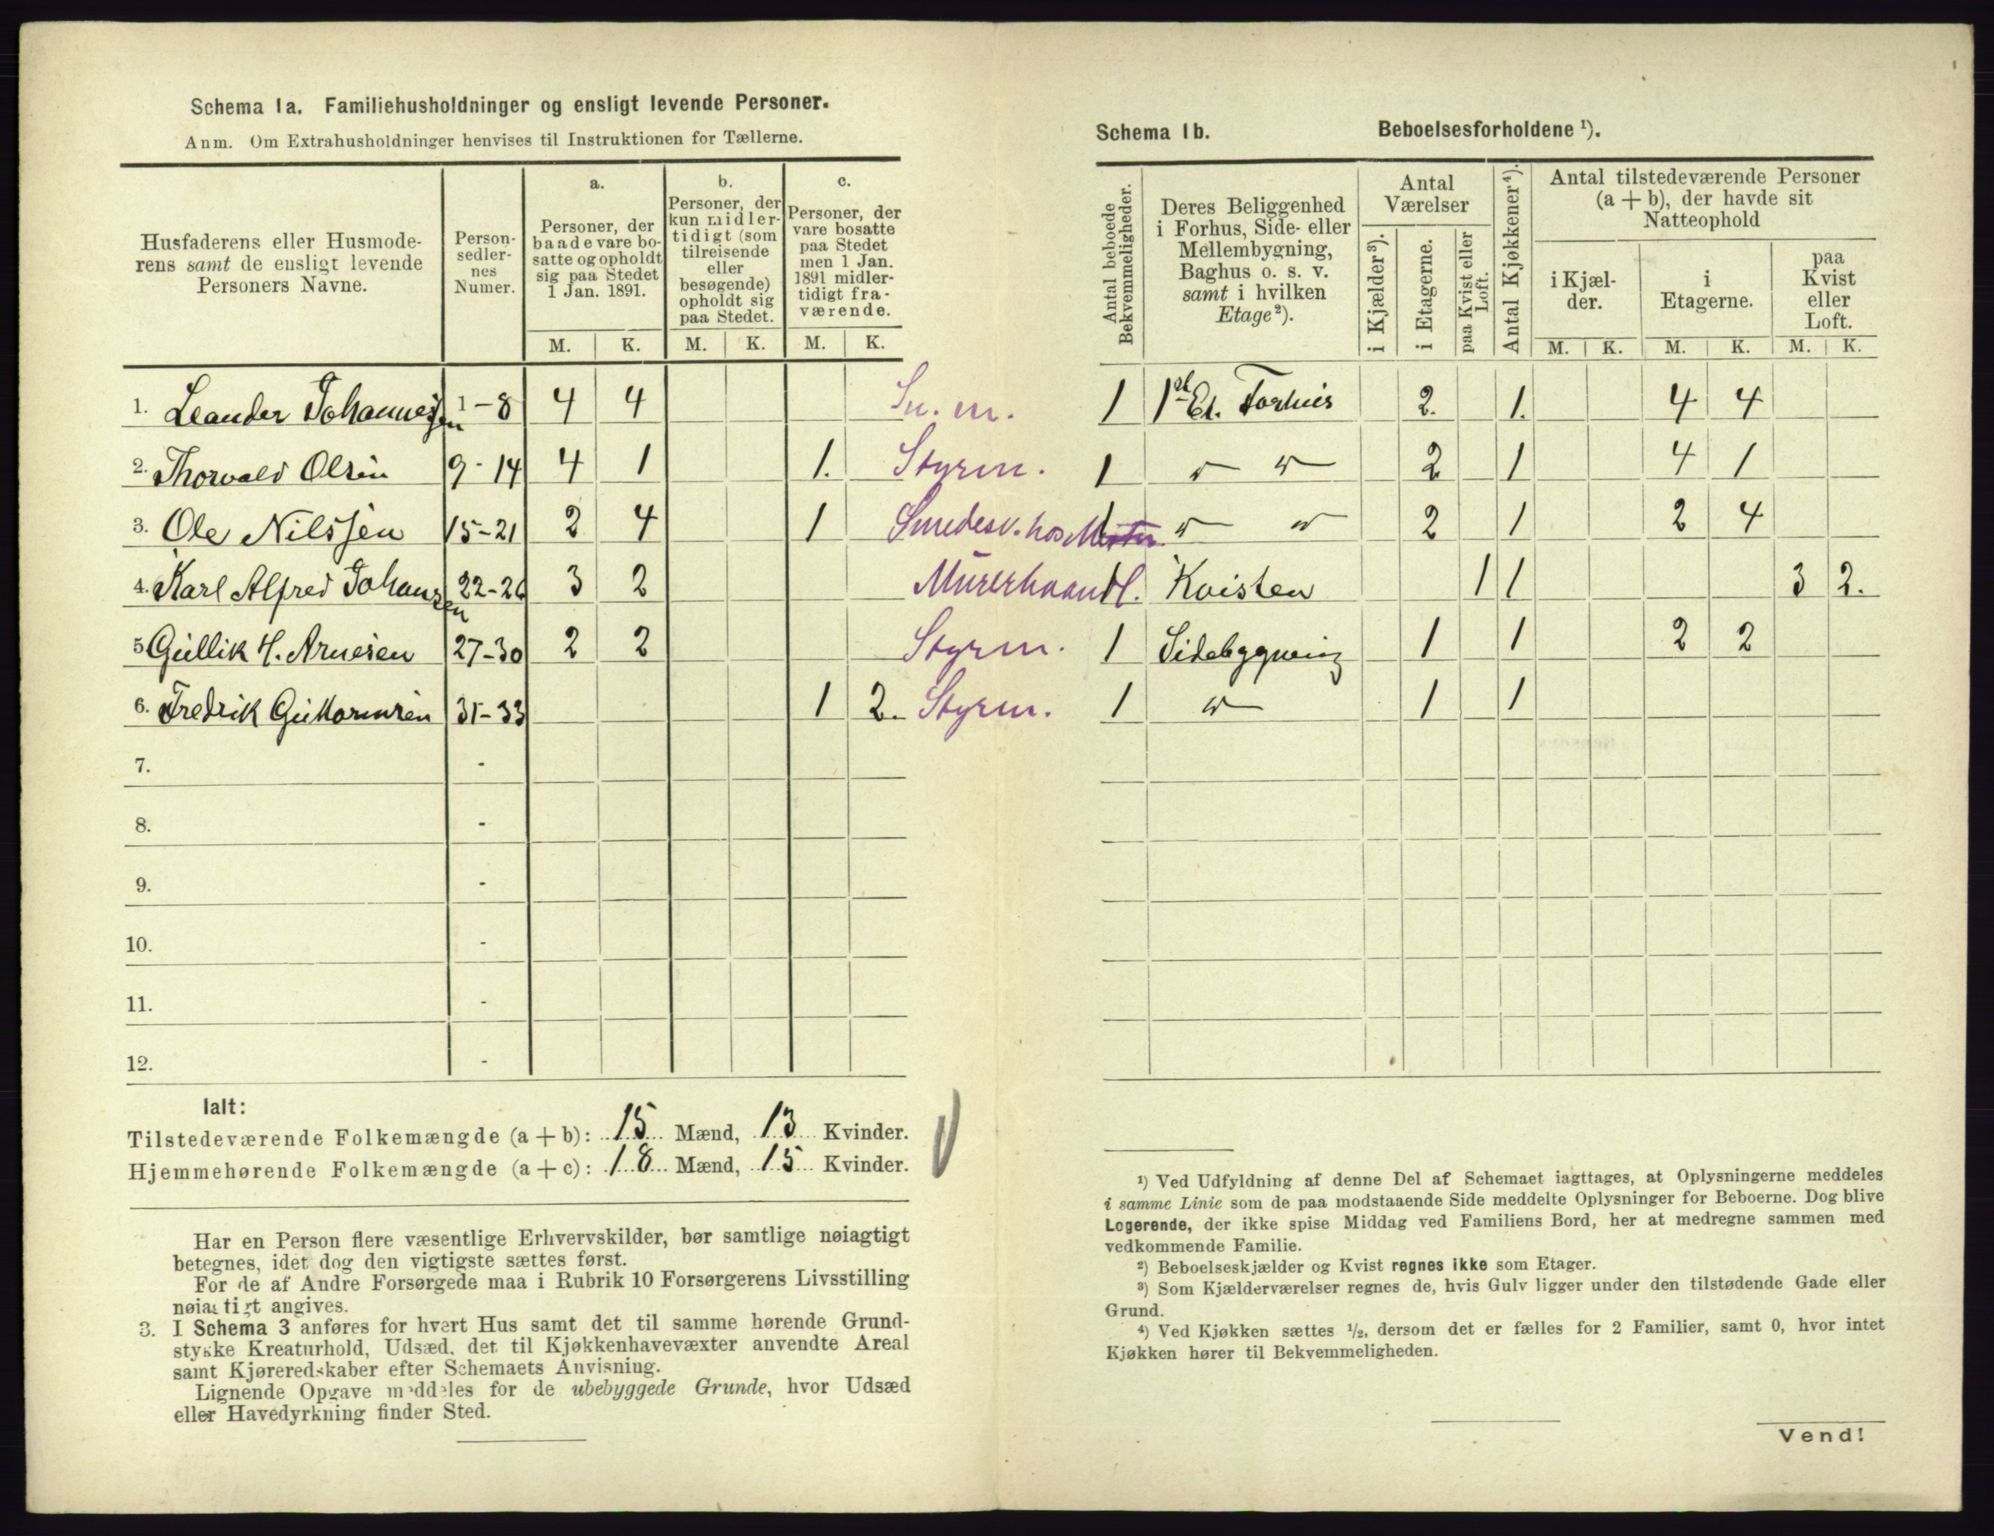 Schema 1a. Familiehusholdninger og ensligt levende Personer.
Anm. Om Extrahusholdninger henvises til Instruktionen for Tællerne.
Husfaderens eller Husmode-
rens samt de ensligt levende
Personers Navne.
Person-
sedler-
nes
Numer.
a.
Personer, der
baade vare bo-
satte og opholdt
sig paa Stedet
1 Jan. 1891.
b.
Personer, der
kun midler-
tidigt (som
tilreisende
eller
besøgende)
opholdt sig
paa Stedet.
c.
Personer, der
vare bosatte
paa Stedet
men 1 Jan.
1891 midler-
tidigt fra-
værende.
M. K. M. K. M. K.
1. Leander Johannessen 1-8 4 4 Sn. m.
2. Thorvald Olsen 9-14 4 1 1. Styrm.
3. Ole Nilssen 15-21 2 4 1 Smedesv. hos Mester
4. Karl Alfred Johansen 22-26 3 2 Murerhaandl.
5 Gullik H. Arnesen 27-30 2 2 Styrm.
6. Fredrik Guttormsen 31-33 1 2. Styrm.
7. -
8. -
9. -
10. -
11. -
12. -
Ialt:
Tilstedeværende Folkemængde (a + b): 15 Mænd, 13 Kvinder.
Hjemmehørende Folkemængde (a + c): 18 Mænd, 15 Kvinder.
Har en Person flere væsentlige Erhvervskilder, bør samtlige nøiagtigt
betegnes, idet dog den vigtigste sættes først.
For de af Andre Forsørgede maa i Rubrik 10 Forsørgerens Livsstilling
nøiagtigt angives.
3. I Schema 3 anføres for hvert Hus samt det til samme hørende Grund-
stykke Kreaturhold, Udsæd, det til Kjøkkenhavevæxter anvendte Areal
samt Kjøreredskaber efter Schemaets Anvisning.
Lignende Opgave meddeles for de ubebyggede Grunde, hvor Udsæd
eller Havedyrkning finder Sted.
Schema 1b. Beboelsesforholdene ¹).
Antal beboede
Bekvemmeligheder.
Deres Beliggenhed
i Forhus, Side- eller
Mellembygning,
Baghus o. s. v.
samt i hvilken
Etage²).
Antal
Værelser
i Kjælder³).
i Etagerne.
paa Kvist eller
Loft.
Antal Kjøkkener⁴).
Antal tilstedeværende Personer
(a + b), der havde sit
Natteophold
i Kjæl-
der.
i
Etagerne.
paa
Kvist
eller
Loft.
M. K. M. K. M. K.
1 1st Et. Forhus 2. 1. 4 4
1 " " 2 1 4 1
1 " " 2 1 2 4
1 Kvisten 1 1 3 2.
1 Sidebygning 1 1 2 2
1 " 1 1
¹) Ved Udfyldning af denne Del af Schemaet iagttages, at Oplysningerne meddeles
i samme Linie som de paa modstaaende Side meddelte Oplysninger for Beboerne. Dog blive
Logerende, der ikke spise Middag ved Familiens Bord, her at medregne sammen med
vedkommende Familie.
²) Beboelseskjælder og Kvist regnes ikke som Etager.
³) Som Kjælderværelser regnes de, hvis Gulv ligger under den tilstødende Gade eller
Grund.
⁴) Ved Kjøkken sættes ½, dersom det er fælles for 2 Familier, samt 0, hvor intet
Kjøkken hører til Bekvemmeligheden.
Vend!